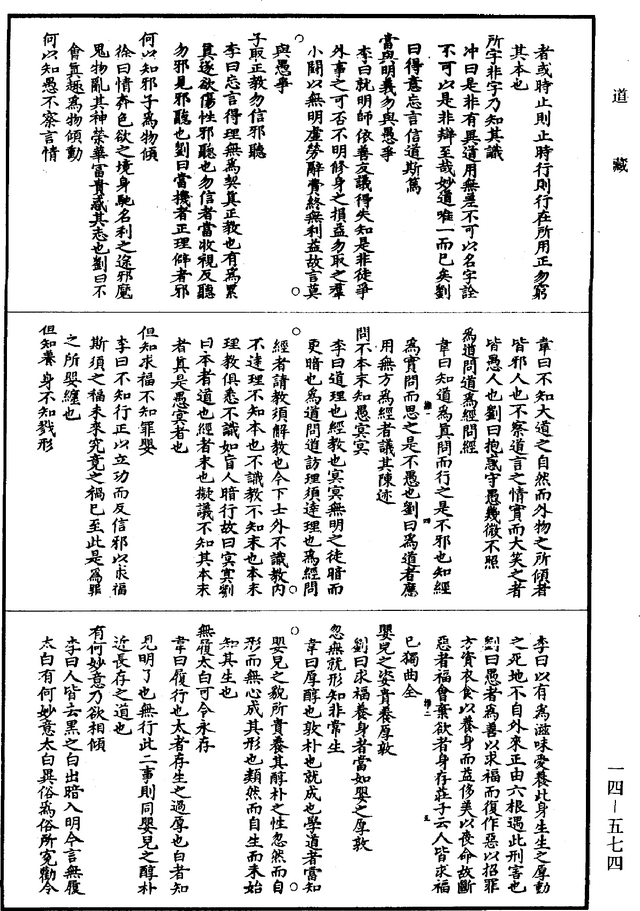 道藏
者或時止則止時行則行在所用正勿窮
其本也
所字非字乃知其識
冲曰是非有異道用無差不可以名字詮
不可以是非辯至哉妙道唯一而已矣劉
曰得意忘言信道斯篤
當與明義勿與愚爭
李曰就明師依善友議得失知是非徒爭
外事之可否不明修身之損益勿取之羣
小闘以無明虛勞辭費終無利益故言莫
與愚爭
子取正教勿信邪聽
李曰忘言得理無為契真正教也有為累
真逐欲傷性邪聽也勿信者當收視反聽
勿邪見邪聽也劉曰當機者正理僻者邪
何以知邪子為物傾
徐曰情奔色欲之境身馳名利之途邪魔
鬼物亂其神榮華富貴惑其志也劉曰不
會真趣為物傾動
何以知愚不察言情
韋曰不知大道之自然而外物之所傾者
皆邪人也不察道言之情實而大笑之者
皆愚人也劉曰抱惑守愚幾微不照
為道問道為經問經
韋曰知道為真問而行之是不邪也知經
為實問而思之是不愚也劉曰為道者應
用無方為經者議其陳迹
問不本末知愚冥冥
李曰道理也經教也冥冥無明之徒暗而
更暗也為道問道訪理須達理也為經問
經者請教須解教也今下士外不識教內
不達理不知本也不識教不知末也本末
理教俱悉不識如盲人暗行故曰冥冥劉
曰本者道也經者末也擬議不知其本末
者真是愚冥者也
但知求福不知罪嬰
李曰不知行正以立功而反信邪以求福
斯須之福未來究竟之禍已至此是為罪
之所嬰纏也
但知養身不知戮形
李曰以有為滋味愛養此身生生之厚動
之死地不自外來正由六根遇此刑害也
劉曰愚者為善以求福而復作惡以招罪
方資衣食以養身而益侈美以喪命故斷
惡者福會棄欲者身存莊子云人皆求福
已獨曲全
嬰兒之姿貴養厚敦
劉曰求福養身者當如嬰之厚敦
忽無就形知非常生
韋曰厚醇也敦朴也就成也學道者當知
嬰兒之貌所貴養其醇朴之性忽然而自
形而無心成其形也類然而自生而未始
知其生也
無履太白可令永存
韋曰履行也太者存生之過厚也白者知
見明了也無行此二事則同嬰兒之醇朴
近長存之道也
有何妙意乃欲相傾
李曰人皆云黑之白出暗入明今言無履
太白有何妙意太白異俗為俗所寃勸令
一四—五七四